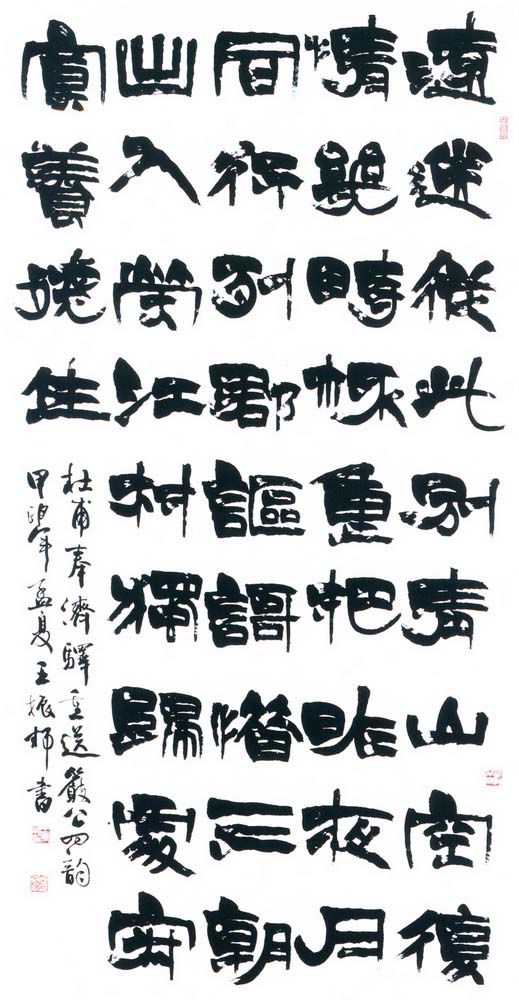 遠送從此別青山空復
情幾時杯重把昨夜月
同行列郡謳謌惜三朝
出入榮江村獨歸處寂
寞養殘生
杜甫奉濟驛重送嚴公四韻
甲年孟夏王振書